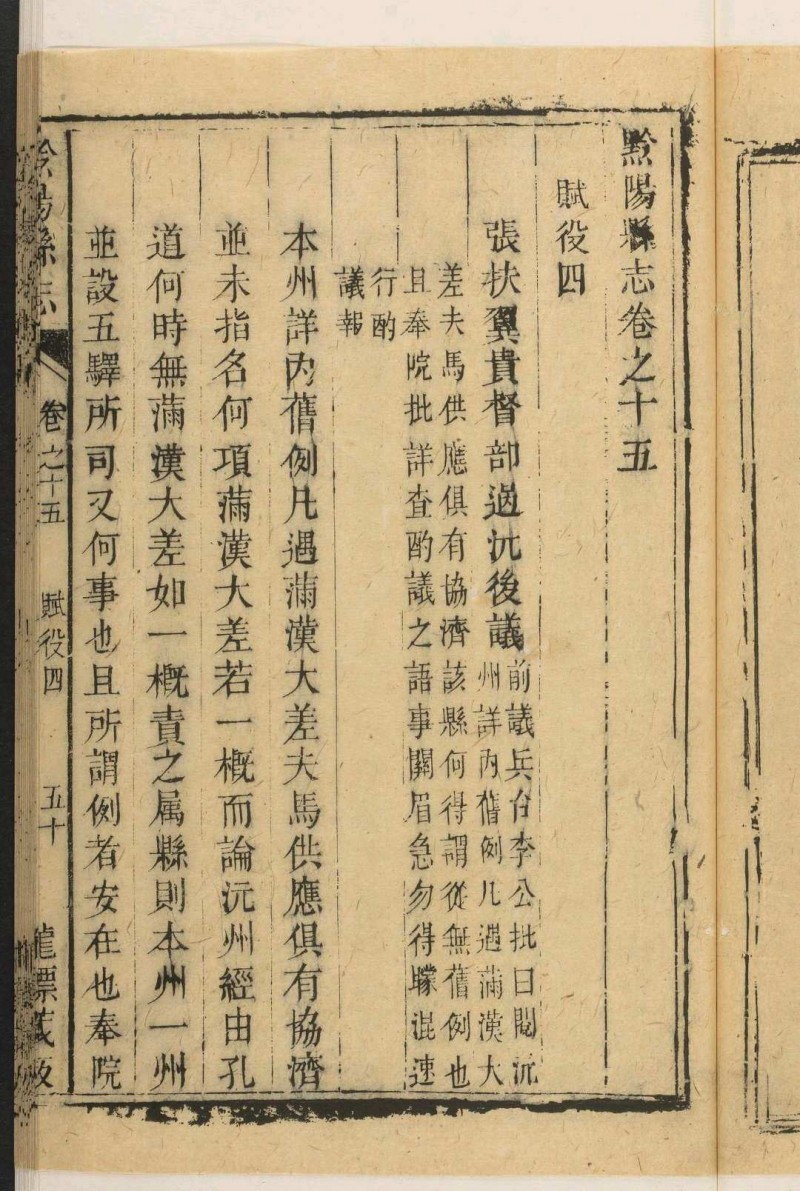 黔陽縣志卷之十五
賦役四
張扶翼貴督部過沅後議前議兵台李公批曰閱沅
州詳内舊例凡遇滿漢大
差夫馬供應俱有協濟該縣何得謂從無舊例也
且奉院批詳查酌議之語事關眉急勿得矇混速
行酌
議報
本州詳内舊例凡遇滿漢大差夫馬供應俱有協濟
並未指名何項滿漢大差若一概而論沅州經由孔
道何時無滿漢大差如一概責之属縣則本州一州
並設五驛所司又何事也且所謂例者安在也奉院
黔陽縣志 卷之十五 賦役四 五十 龍標藏板